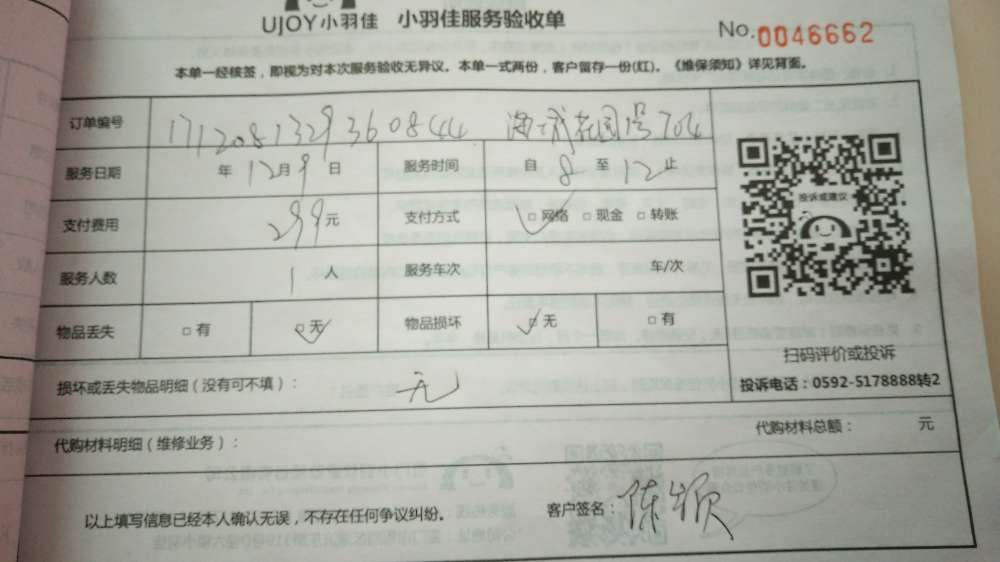 UJOY小羽佳 小羽佳服务验收单 No.0046662
本单一经核签，即视为对本次服务验收无异议。本单一式两份，客户留存一份(红)。《维保须知》详见背面。
订单编号 1712081329360844 花园 号704
服务日期 年12月9日 服务时间 自8至12止
支付费用 299元 支付方式 □网络 □现金 □转账
服务人数 1人 服务车次 车/次
物品丢失 □有 □无 物品损坏 □无 □有
投诉或建议
扫码评价或投诉
投诉电话：0592-5178888转2
损坏或丢失物品明细（没有可不填）： 无
代购材料明细（维修业务）： 代购材料总额： 元
以上填写信息已经本人确认无误，不存在任何争议纠纷。 客户签名：陈颖